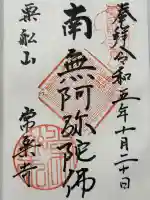 奉拝令和五年十月二十日
南無阿弥陀佛
粟船山
常楽寺